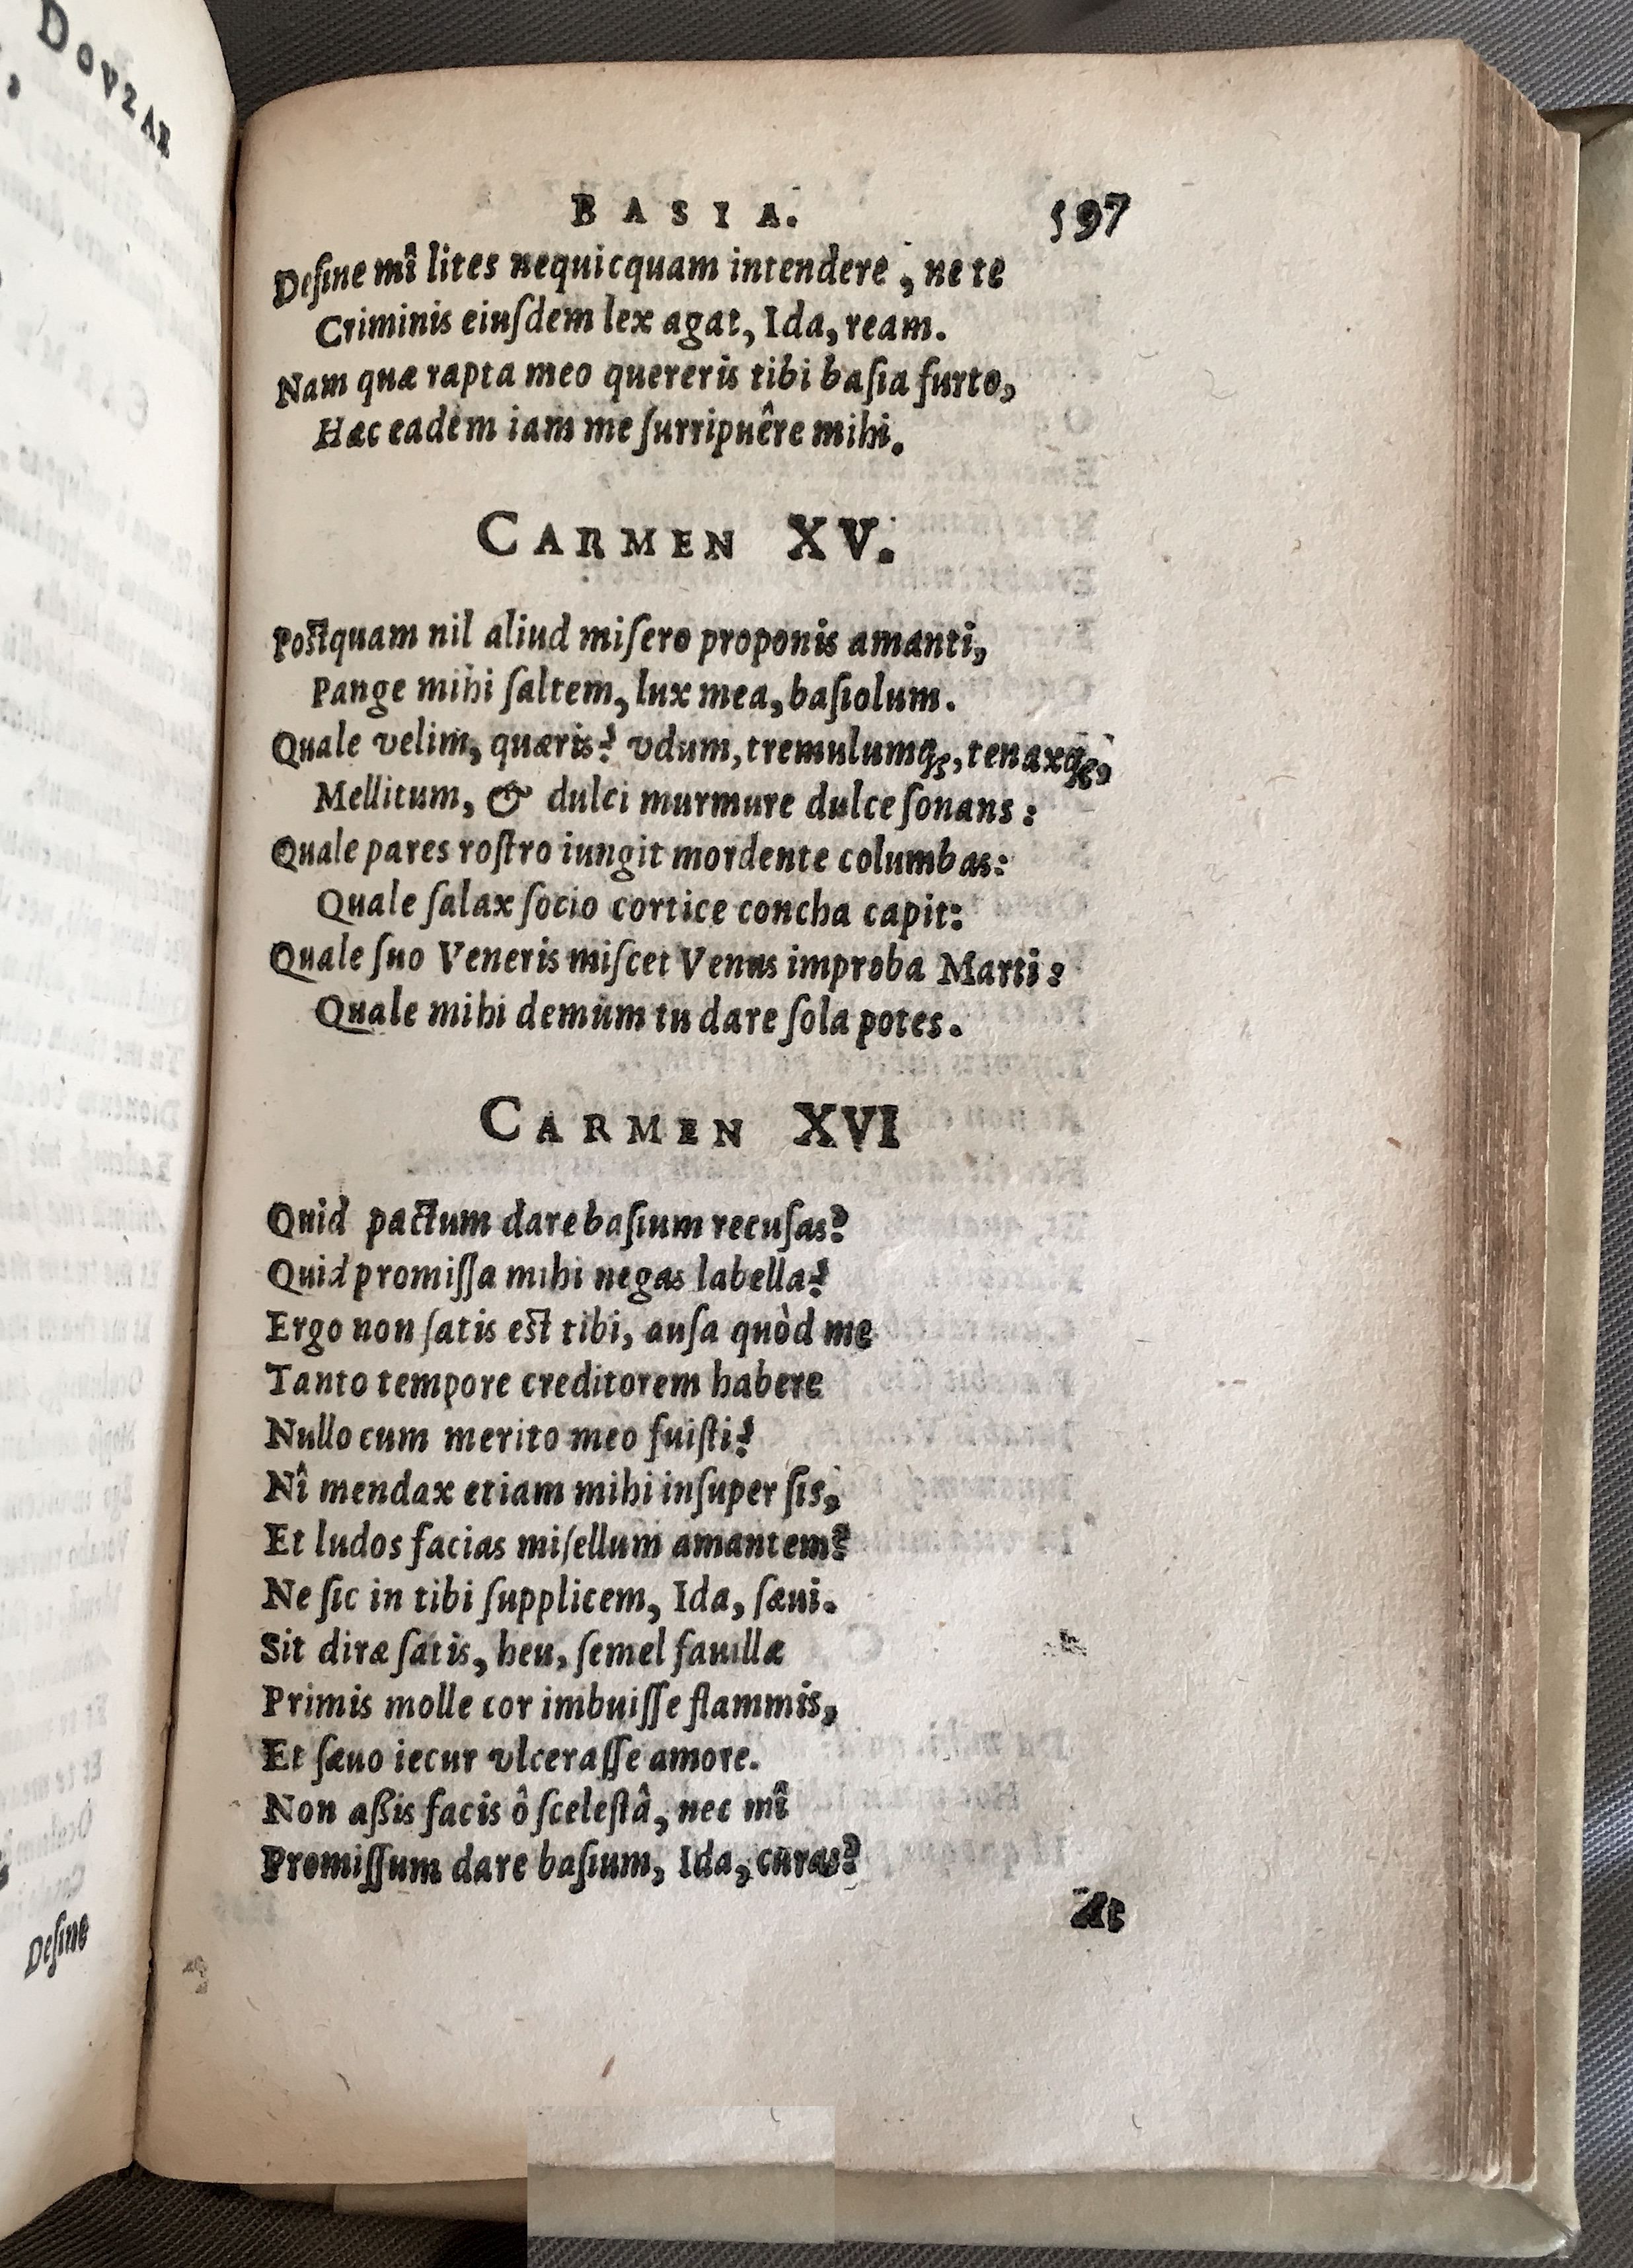 DOVZAE
BASIA. 597
Deſine mî lites nequicquam intendere, ne te
Criminis eiuſdem lex agat, Ida, ream.
Nam quæ rapta meo quereris tibi baſia furto,
Hæc eadem iam me ſurripuêre mihi.
CARMEN XV.
Poſtquam nil aliud miſero proponis amanti,
Pange mihi ſaltem, lux mea, baſiolum.
Quale velim, quæris? vdum, tremulumq́;, tenaxq́;,
Mellitum, & dulci murmure dulce ſonans:
Quale pares roſtro iungit mordente columbas:
Quale ſalax ſocio cortice concha capit:
Quale ſuo Veneris miſcet Venus improba Marti:
Quale mihi demùm tu dare ſola potes.
CARMEN XVI
Quid pactum dare baſium recuſas?
Quid promiſſa mihi negas labella?
Ergo non ſatis eſt tibi, auſa quòd me
Tanto tempore creditorem habere
Nullo cum merito meo fuiſti?
Nî mendax etiam mihi inſuper ſis,
Et ludos facias miſellum amantem?
Ne ſic in tibi ſupplicem, Ida, ſæui.
Sit diræ ſatis, heu, ſemel fauillæ
Primis molle cor imbuiſſe flammis,
Et ſæuo iecur vlceraſſe amore.
Non aßis facis ô ſceleſtâ, nec mî
Promiſſum dare baſium, Ida, curas?
At
Deſine